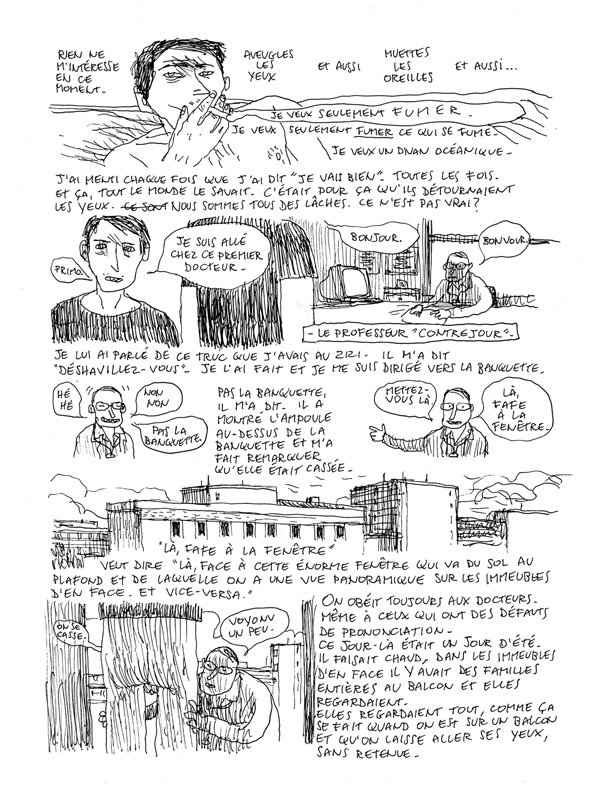 RIEN NE
M'INTÉRESSE
EN CE
MOMENT.
AVEUGLES
LES
YEUX
ET AUSSI
MUETTES
LES
OREILLES
ET AUSSI...
JE VEUX SEULEMENT FUMER.
JE VEUX SEULEMENT FUMER CE QUI SE FUME.
JE VEUX UN DIVAN OCÉANIQUE.
J'AI MENTI CHAQUE FOIS QUE J'AI DIT "JE VAIS BIEN". TOUTES LES FOIS.
ET ÇA, TOUT LE MONDE LE SAVAIT. C'ÉTAIT POUR ÇA QU'ILS DÉTOURNAIENT
LES YEUX. CE SONT NOUS SOMMES TOUS DES LÂCHES. CE N'EST PAS VRAI?
PRIMO.
JE SUIS ALLÉ
CHEZ CE PREMIER
DOCTEUR.
BONJOUR.
BONVOUR.
- LE PROFESSEUR "CONTREJOUR".
JE LUI AI PARLÉ DE CE TRUC QUE J'AVAIS AU ZIZI. IL M'A DIT
"DÉSHAVILLEZ-VOUS". JE L'AI FAIT ET JE ME SUIS DIRIGÉ VERS LA BANQUETTE.
HÉ
HÉ
NON
NON
PAS LA
BANQUETTE.
PAS LA BANQUETTE,
IL M'A DIT. IL A
MONTRÉ L'AMPOULE
AU-DESSUS DE LA
BANQUETTE ET M'A
FAIT REMARQUER
QU'ELLE ÉTAIT CASSÉE.
METTEZ-
VOUS LÀ.
LÀ,
FAFE
À LA
FENÊTRE.
"LÀ, FAFE À LA FENÊTRE"
VEUT DIRE "LÀ, FACE À CETTE ÉNORME FENÊTRE QUI VA DU SOL AU
PLAFOND ET DE LAQUELLE ON A UNE VUE PANORAMIQUE SUR LES IMMEUBLES
D'EN FACE. ET VICE-VERSA."
ON SE
CASSE.
VOYONV
UN PEU.
ON OBÉIT TOUJOURS AUX DOCTEURS.
MÊME À CEUX QUI ONT DES DÉFAUTS
DE PRONONCIATION.
CE JOUR-LÀ ÉTAIT UN JOUR D'ÉTÉ.
IL FAISAIT CHAUD, DANS LES IMMEUBLES
D'EN FACE IL Y AVAIT DES FAMILLES
ENTIÈRES AU BALCON ET ELLES
REGARDAIENT.
ELLES REGARDAIENT TOUT, COMME ÇA
SE FAIT QUAND ON EST SUR UN BALCON
ET QU'ON LAISSE ALLER SES YEUX,
SANS RETENUE.